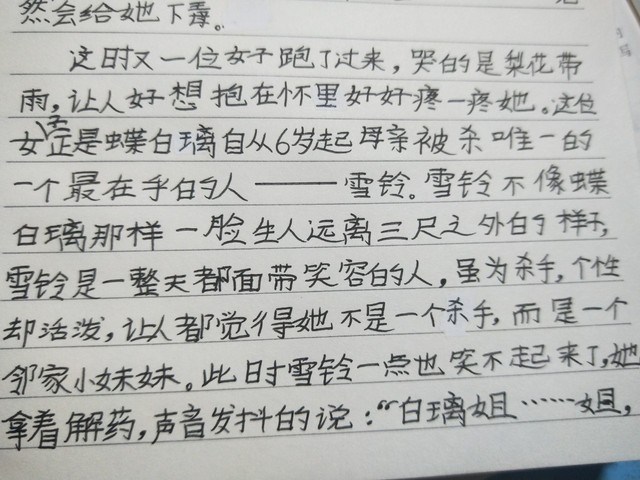 然会给她下毒。
这时又一位女子跑了过来,哭的是梨花带
雨,让人好想抱在怀里好好疼一疼她。这位
女子正是蝶白璃自从6岁起母亲被杀唯一的
一个最在乎的人——雪铃。雪铃不像蝶
白璃那样一脸生人远离三尺之外的样子,
雪铃是一整天都面带笑容的人,虽为杀手,个性
却活泼,让人都觉得她不是一个杀手,而是一个
邻家小妹妹。此时雪铃一点也笑不起来了,她
拿着解药,声音发抖的说:“白璃姐……姐,